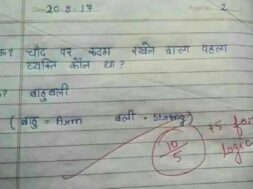 Date 20.5.17 Page No. 2
चाँद पर कदम रखने वाला पहला
व्यक्ति कौन था ?
बाहुबली
( बाहु = Arm बली = Strong )
10/5
+5 for
logic